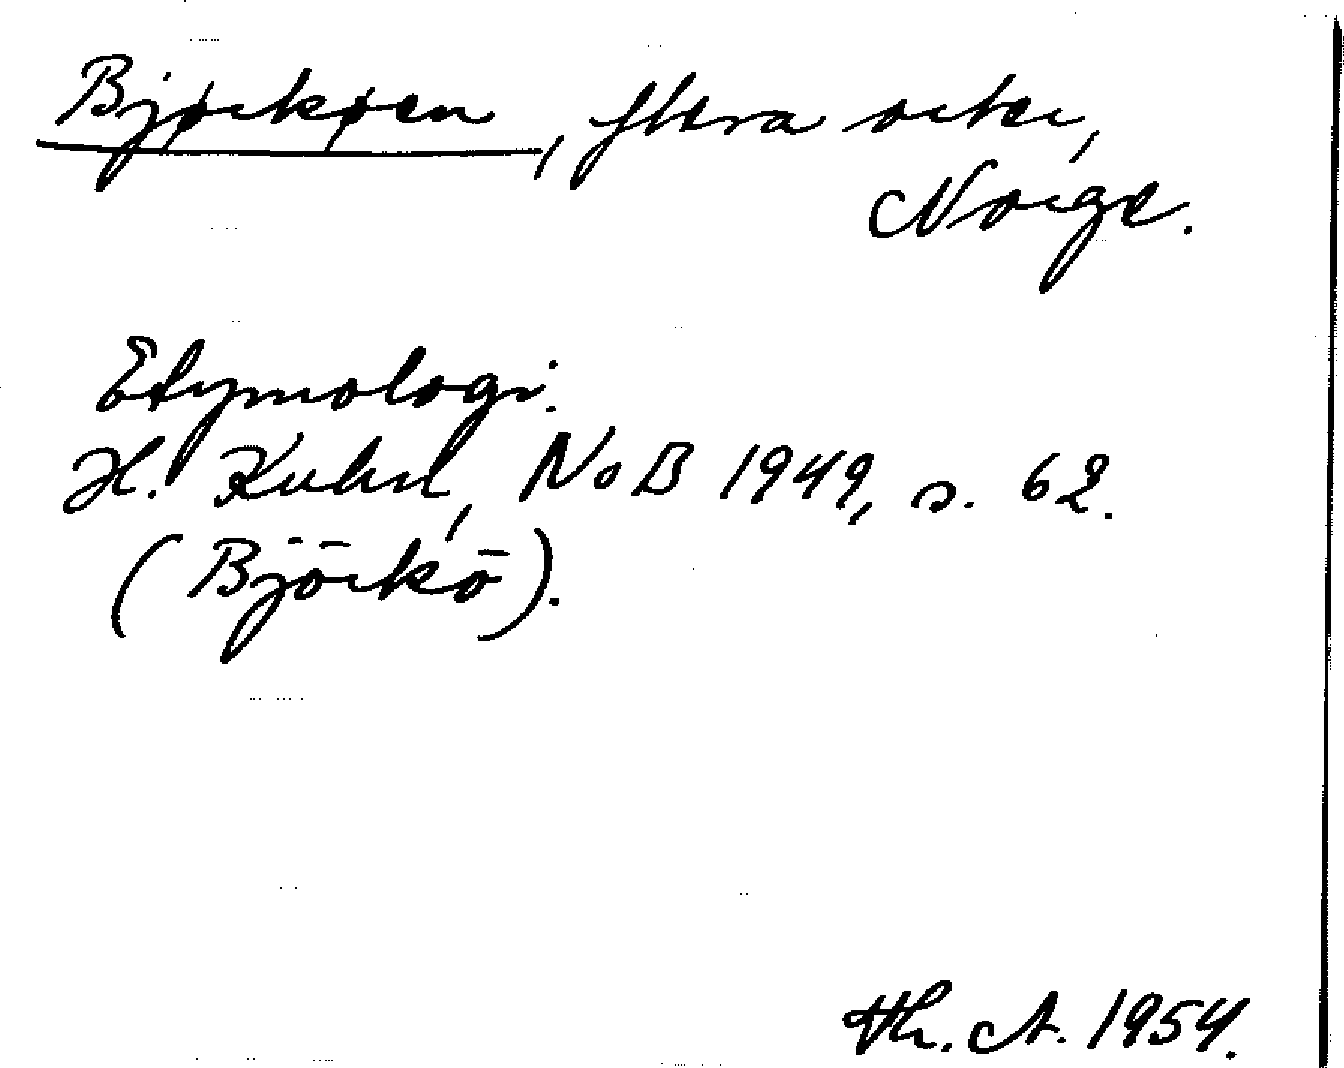 Bjørkøen, flera orter,
Norge.
Etymologi:
H. Kuhn, NoB 1949, s. 62.
(Björkö).
Th. A. 1954.